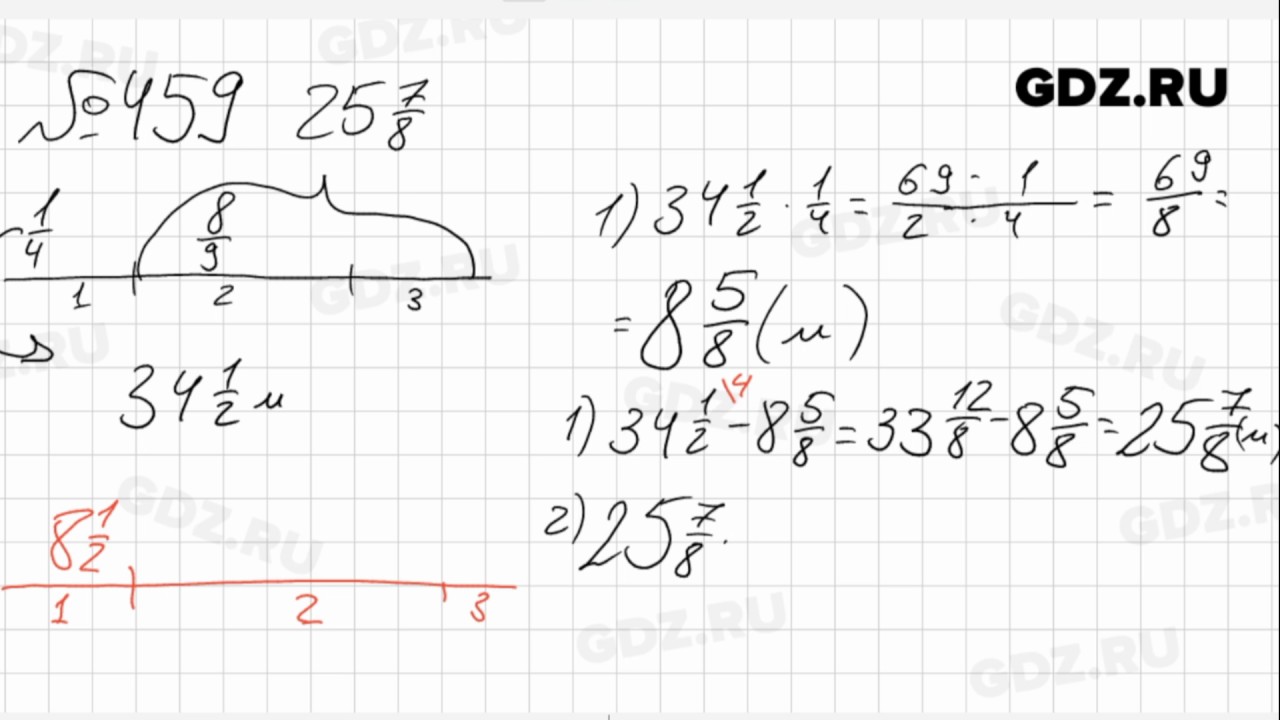 GDZ.RU
№459 25 7/8
1/4 8/9
1 2 3
34 1/2 м
8 1/2
1 2 3
1) 34 1/2 · 1/4 = 69 · 1 / 2 · 4 = 69/8 =
= 8 5/8 (м)
1) 34 1/2 \4 - 8 5/8 = 33 12/8 - 8 5/8 = 25 7/8 (м)
2) 25 7/8 ·